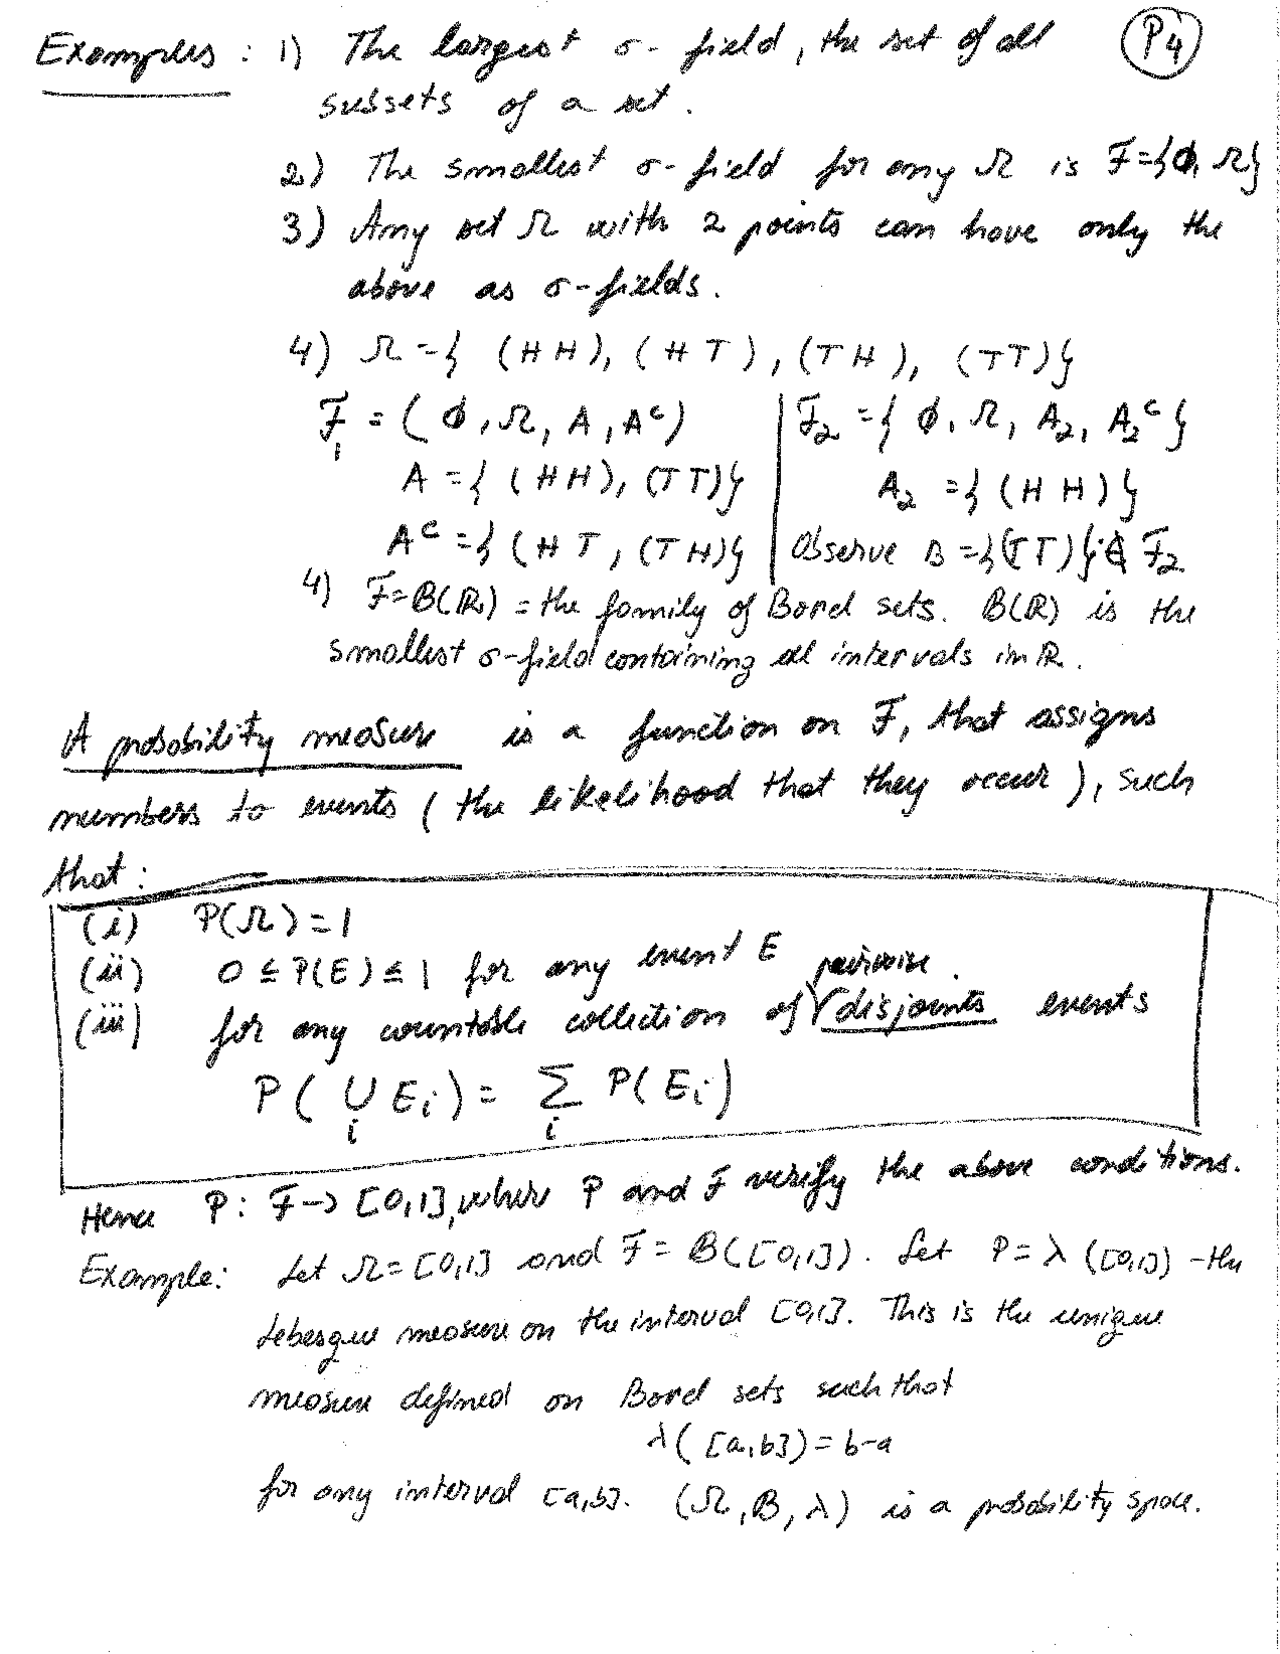 Examples : 1) The largest σ- field, the set of all P4
subsets of a set.
2) The smallest σ-field for any Ω is F={∅, Ω}
3) Any set Ω with 2 points can have only the
above as σ-fields.
4) Ω={ (HH), (HT), (TH), (TT)}
F₁ = (∅, Ω, A, Aᶜ) | F₂ ={ ∅, Ω, A₂, A₂ᶜ}
A ={ (HH), (TT)} | A₂ ={ (HH)}
Aᶜ ={ (HT, (TH)} | Observe B ={(TT)} ∉ F₂
4) F=B(ℝ) = the family of Borel sets. B(ℝ) is the
smallest σ-field containing all intervals in ℝ.
A probability measure is a function on F, that assigns
numbers to events ( the likelihood that they occur ), such
that :
(i) P(Ω)=1
(ii) 0 ≤ P(E) ≤ 1 for any event E
(iii) for any countable collection of pairwise disjoints events
P( ∪ Eᵢ) = Σ P(Eᵢ)
i i
Hence P: F→ [0,1], where P and F verify the above conditions.
Example: Let Ω=[0,1] and F = B([0,1]). Let P=λ ([0,1]) - the
Lebesgue measure on the interval [0,1]. This is the unique
measure defined on Borel sets such that
λ([a,b])= b-a
for any interval [a,b]. (Ω, B, λ) is a probability space.